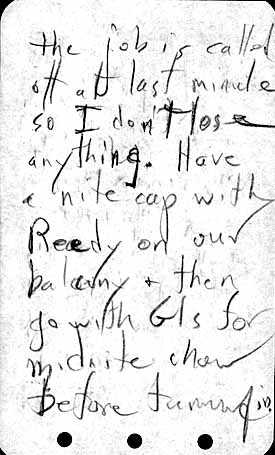 the job is called
off at last minute
so I don't lose
anything. Have
a nite cap with
Reedy on our
balcony + then
go with GIs for
midnite chow
before turning in.